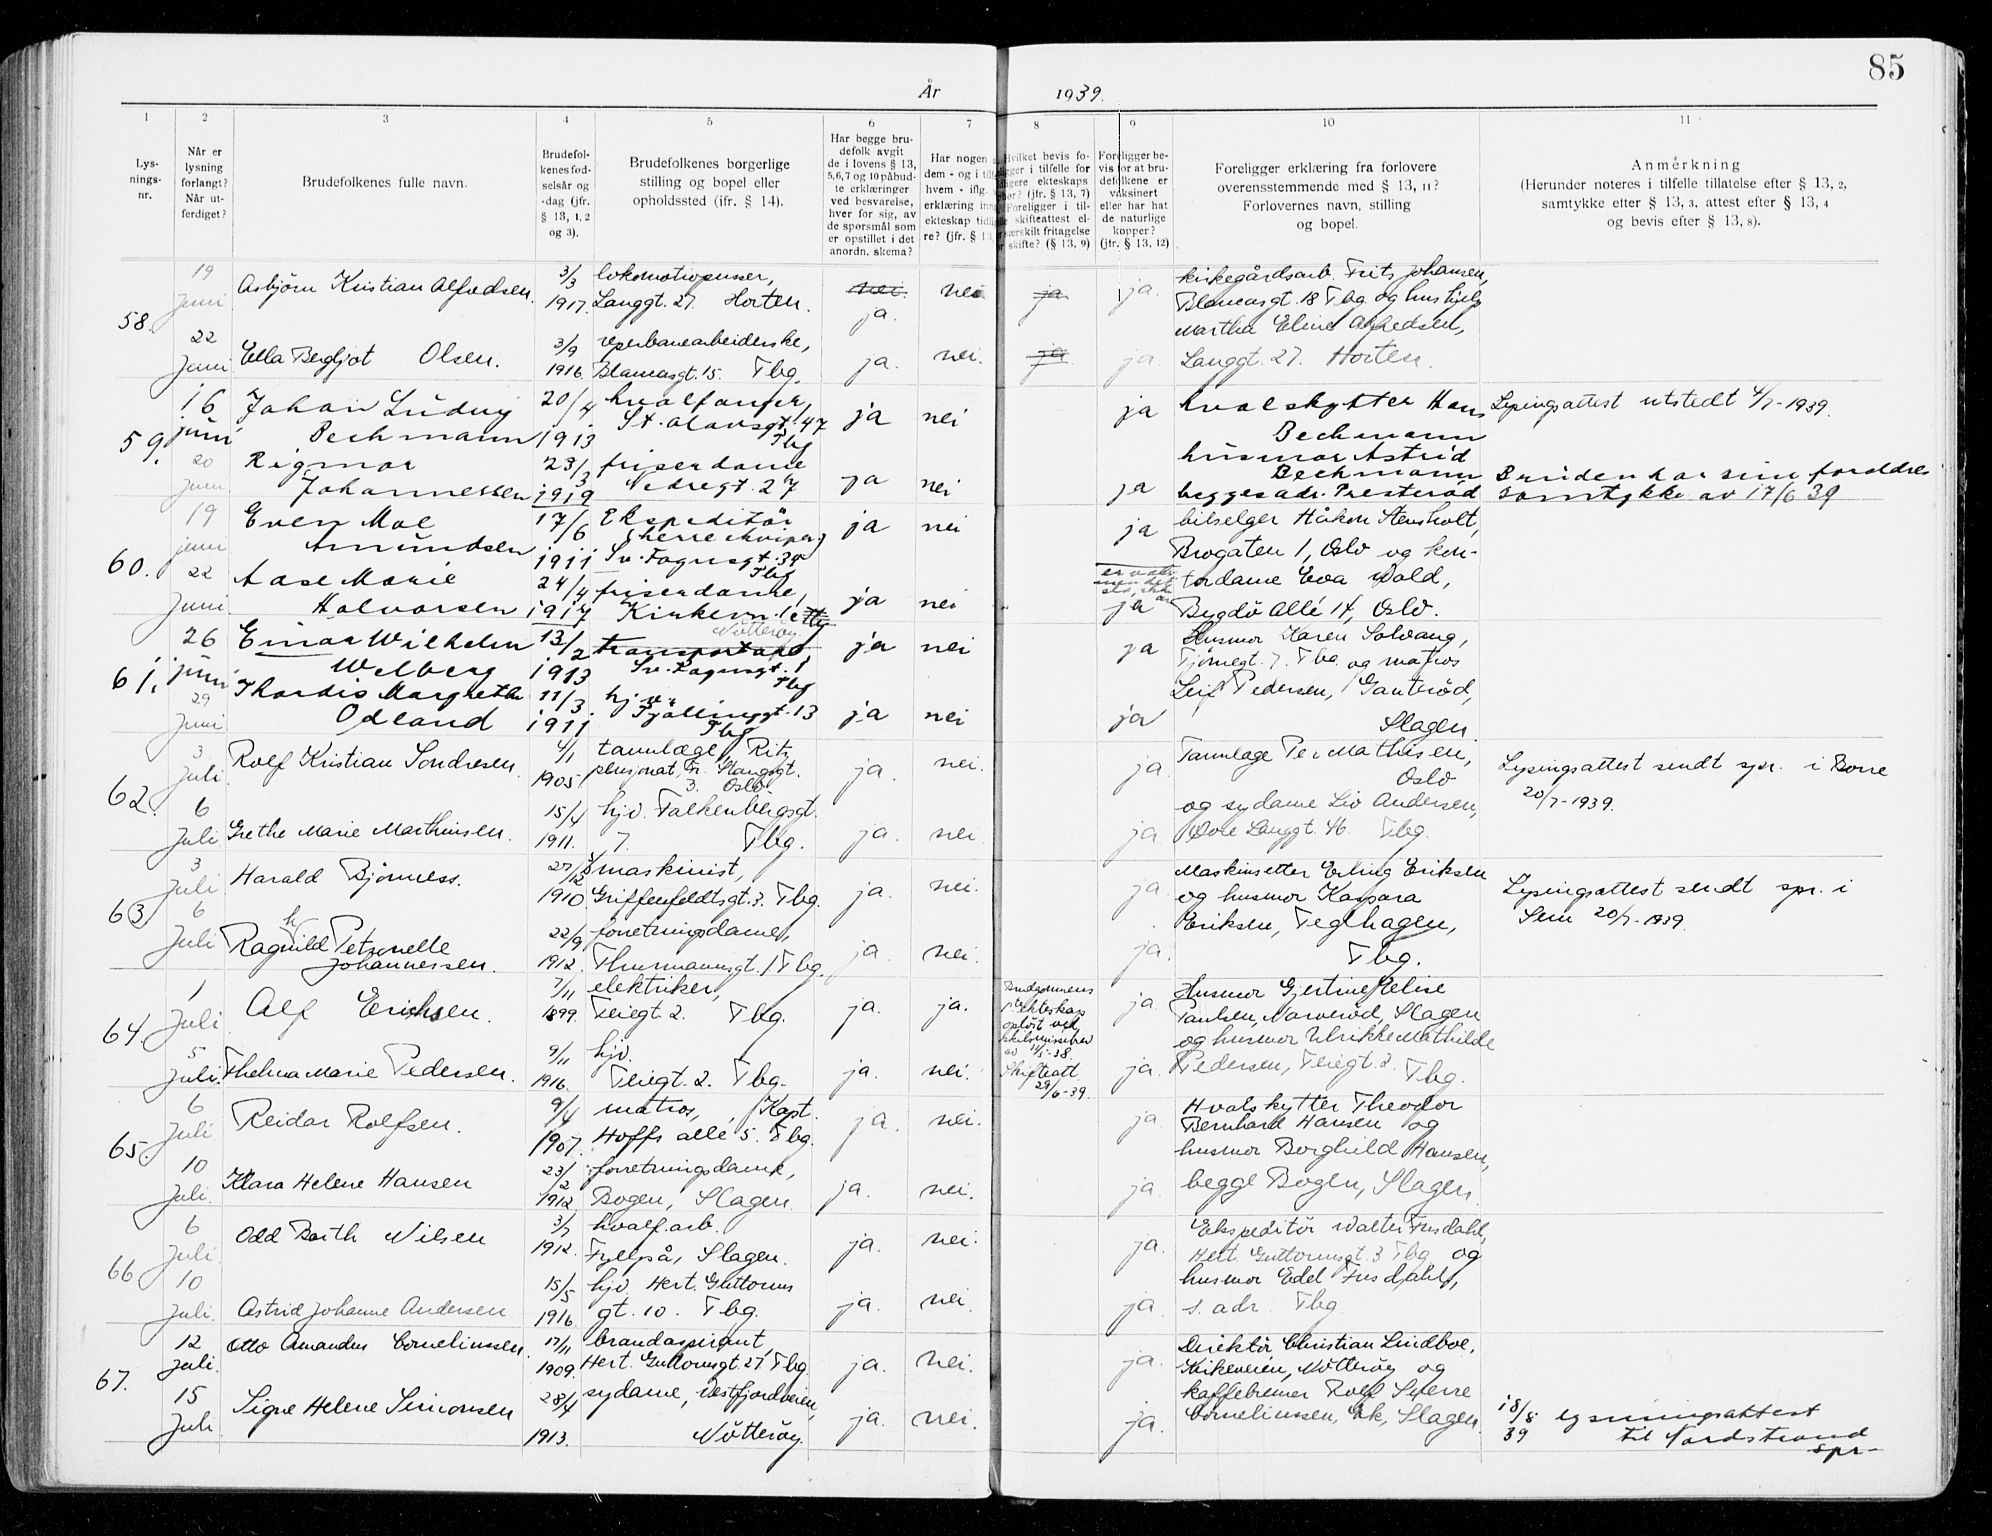 85
År 1939.
1 2 3 4 5 6 7 8 9 10 11
Lysnings-nr.
Når er lysning forlangt? Når utferdiget?
Brudefolkenes fulle navn.
Brudefolkenes fødselsår og -dag (jfr. § 13, 1, 2 og 3).
Brudefolkenes borgerlige stilling og bopel eller opholdssted (ifr. § 14).
Har begge brudefolk avgit de i lovens § 13, 5, 6, 7 og 10 påbudte erklæringer ved besvarelse, hver for sig, av de spørsmål som er opstillet i det anordn. skema?
Har nogen
dem - og i til
hvem - iflg.
erklæring inn
ekteskap tidlig
re? (jfr. § 13
Hvilket bevis fo-
ger i tilfelle for
gere ekteskaps
hør? (jfr. § 13, 7)
Foreligger i til-
skifteattest el-
særskilt fritagelse
skifte? (§ 13, 9)
Foreligger bevis for at brudefolkene er vaksinert eller har hat de naturlige kopper? (jfr. § 13, 12)
Foreligger erklæring fra forlovere overensstemmende med § 13, 11? Forlovernes navn, stilling og bopel.
Anmerkning
(Herunder noteres i tilfelle tillatelse efter § 13, 2, samtykke etter § 13, 3, attest efter § 13, 4 og bevis efter § 13, 8).
58. 19 Juni Asbjörn Kristian Alfredsen. 3/3 1917. lokomotivpusser, Langgt. 27. Horten. nei. ja. nei ja ja. kirkegårdsarb. Fritz Johansen, Blancasgt. 18 Tbg og hushjelp Martha Eline Alfredsen, Langgt. 27. Horten.
22 Juni Ella Bergljot Olsen. 3/9 1916. reperbanearbeiderske, Blancasgt. 15. Tbg. ja. nei. ja ja
59. 16 juni Johan Ludvig Bechmann 20/4 1913 hvalfanger, St. Olavsgt. 47 Tbg ja nei ja hvalskytter Hans Bechmann husmor Astrid Bechmann begges adr. Presterød Lysingsattest utstedt 4/7-1939.
20 Juni Rigmor Johannessen 23/3 1919 friserdame Nedregt. 27 ja nei ja Bruden har sine foreldres samtykke av 17/6 39
60. 19 juni Even Moe Amundsen 17/6 1911 Ekspeditör (herreekviper.) Sv. Foynsgt. 39 Tbg ja nei ja bilselger Håkon Stensholt, Brogaten 1, Oslo og kontordame Eva Wold, Bygdö Allé 14, Oslo.
22 Juni Aase Marie Halvorsen 24/4 1917 friserdame, Kirkevn. Tbg Nötteröy ja nei ja
61. 26 juni Einar Wilhelm Welberg 13/2 1913 Sv. Foynsgt. 1 Tbg ja nei ja Husmor Karen Solvang, Tjømegt. 7. Tbg. og matros Leif Pedersen, Ganterød, Slagen.
29 Juni Thordis Margrethe Odland 11/3 1911 hjv. Fjellinggt. 13 Tbg ja nei ja
62. 3 Juli Rolf Kristian Sondresen. 4/1 1905. tannlæge, Ritz pensjonat, Fr. Stangsgt. 3. Oslo ja. nei. ja Tannlæge Per Mathisen, Oslo og sydame Liv Andersen, Øvre Langgt. 46 Tbg. Lysingsattest sendt spr. i Borre 20/7-1939.
6 Juli Grethe Marie Marthinsen. 15/4 1911. hjv. Falkenbergsgt. 7. Tbg. ja. nei ja
63. 3 Juli Harald Bjønness. 27/12 1910 maskinist, Griffenfeldtsgt. 3. Tbg. ja. nei. ja. Maskinsetter Erling Eriksen og husmor Kaspara Eriksen, Teglhagen, Tbg. Lysingsattest sendt spr. i Sem 20/7-1939.
6 Juli Ragnhild Petronelle Johannessen. 22/9 1912. forretningsdame, Thurmannsgt. 1 Tbg. ja. nei. ja.
64. 1 Juli Alf Erichsen. 7/11 1899. elektriker, Teiegt. 2. Tbg. ja. ja. Brudgommens 1. ekteskap opløst ved skilsmissebev. av 11/5-38. Skifteatt. 29/6-39. ja. Husmor Gjertine Elise Paulsen, Narverød, Slagen og husmor Ulrikke Mathilde Pedersen, Teiegt. 2. Tbg.
5 Juli. Thelma Marie Pedersen. 9/11 1916. hjv. Teiegt. 2. Tbg. ja. nei. ja.
65. 6 Juli Reidar Rolfsen. 9/4 1907. matros, Kapt. Hoffs allé 5. Tbg. ja. nei. ja. Hvalskytter Theodor Bernhard Hansen og husmor Borghild Hansen, begge Bogen, Slagen.
10 Juli. Klara Helene Hansen 23/2 1912. forretningsdame, Bogen, Slagen. ja. nei. ja.
66. 6 Juli Odd Barth Nilsen 3/7 1912. hvalf.arb. Fyllpå, Slagen. ja. nei. ja. Ekspeditör Walter Fusdahl, Hert. Guttormsgt. 3 Tbg og husmor Edel Fusdahl, s. adr. Tbg.
10 Juli. Astrid Johanne Andersen 15/5 1916. hjv. Hert. Guttorms gt. 10. Tbg. ja. nei. ja.
67. 12 Juli. Otto Amandus Cornelinssen. 17/11 1909. brandaspirant Hert. Guttormsgt. 27 Tbg. ja. nei. ja. Direktör Christian Lindboe, Kirkeveien, Nötteröy og kaffebrenner Rolf Sverre Cornelinssen, Ek, Slagen.
15 Juli Signe Helene Simonsen 28/4 1913. sydame, Vestfjordveien, Nötteröy. ja. nei. ja. 18/8 39 lysningsattest til Nordstrand spr-